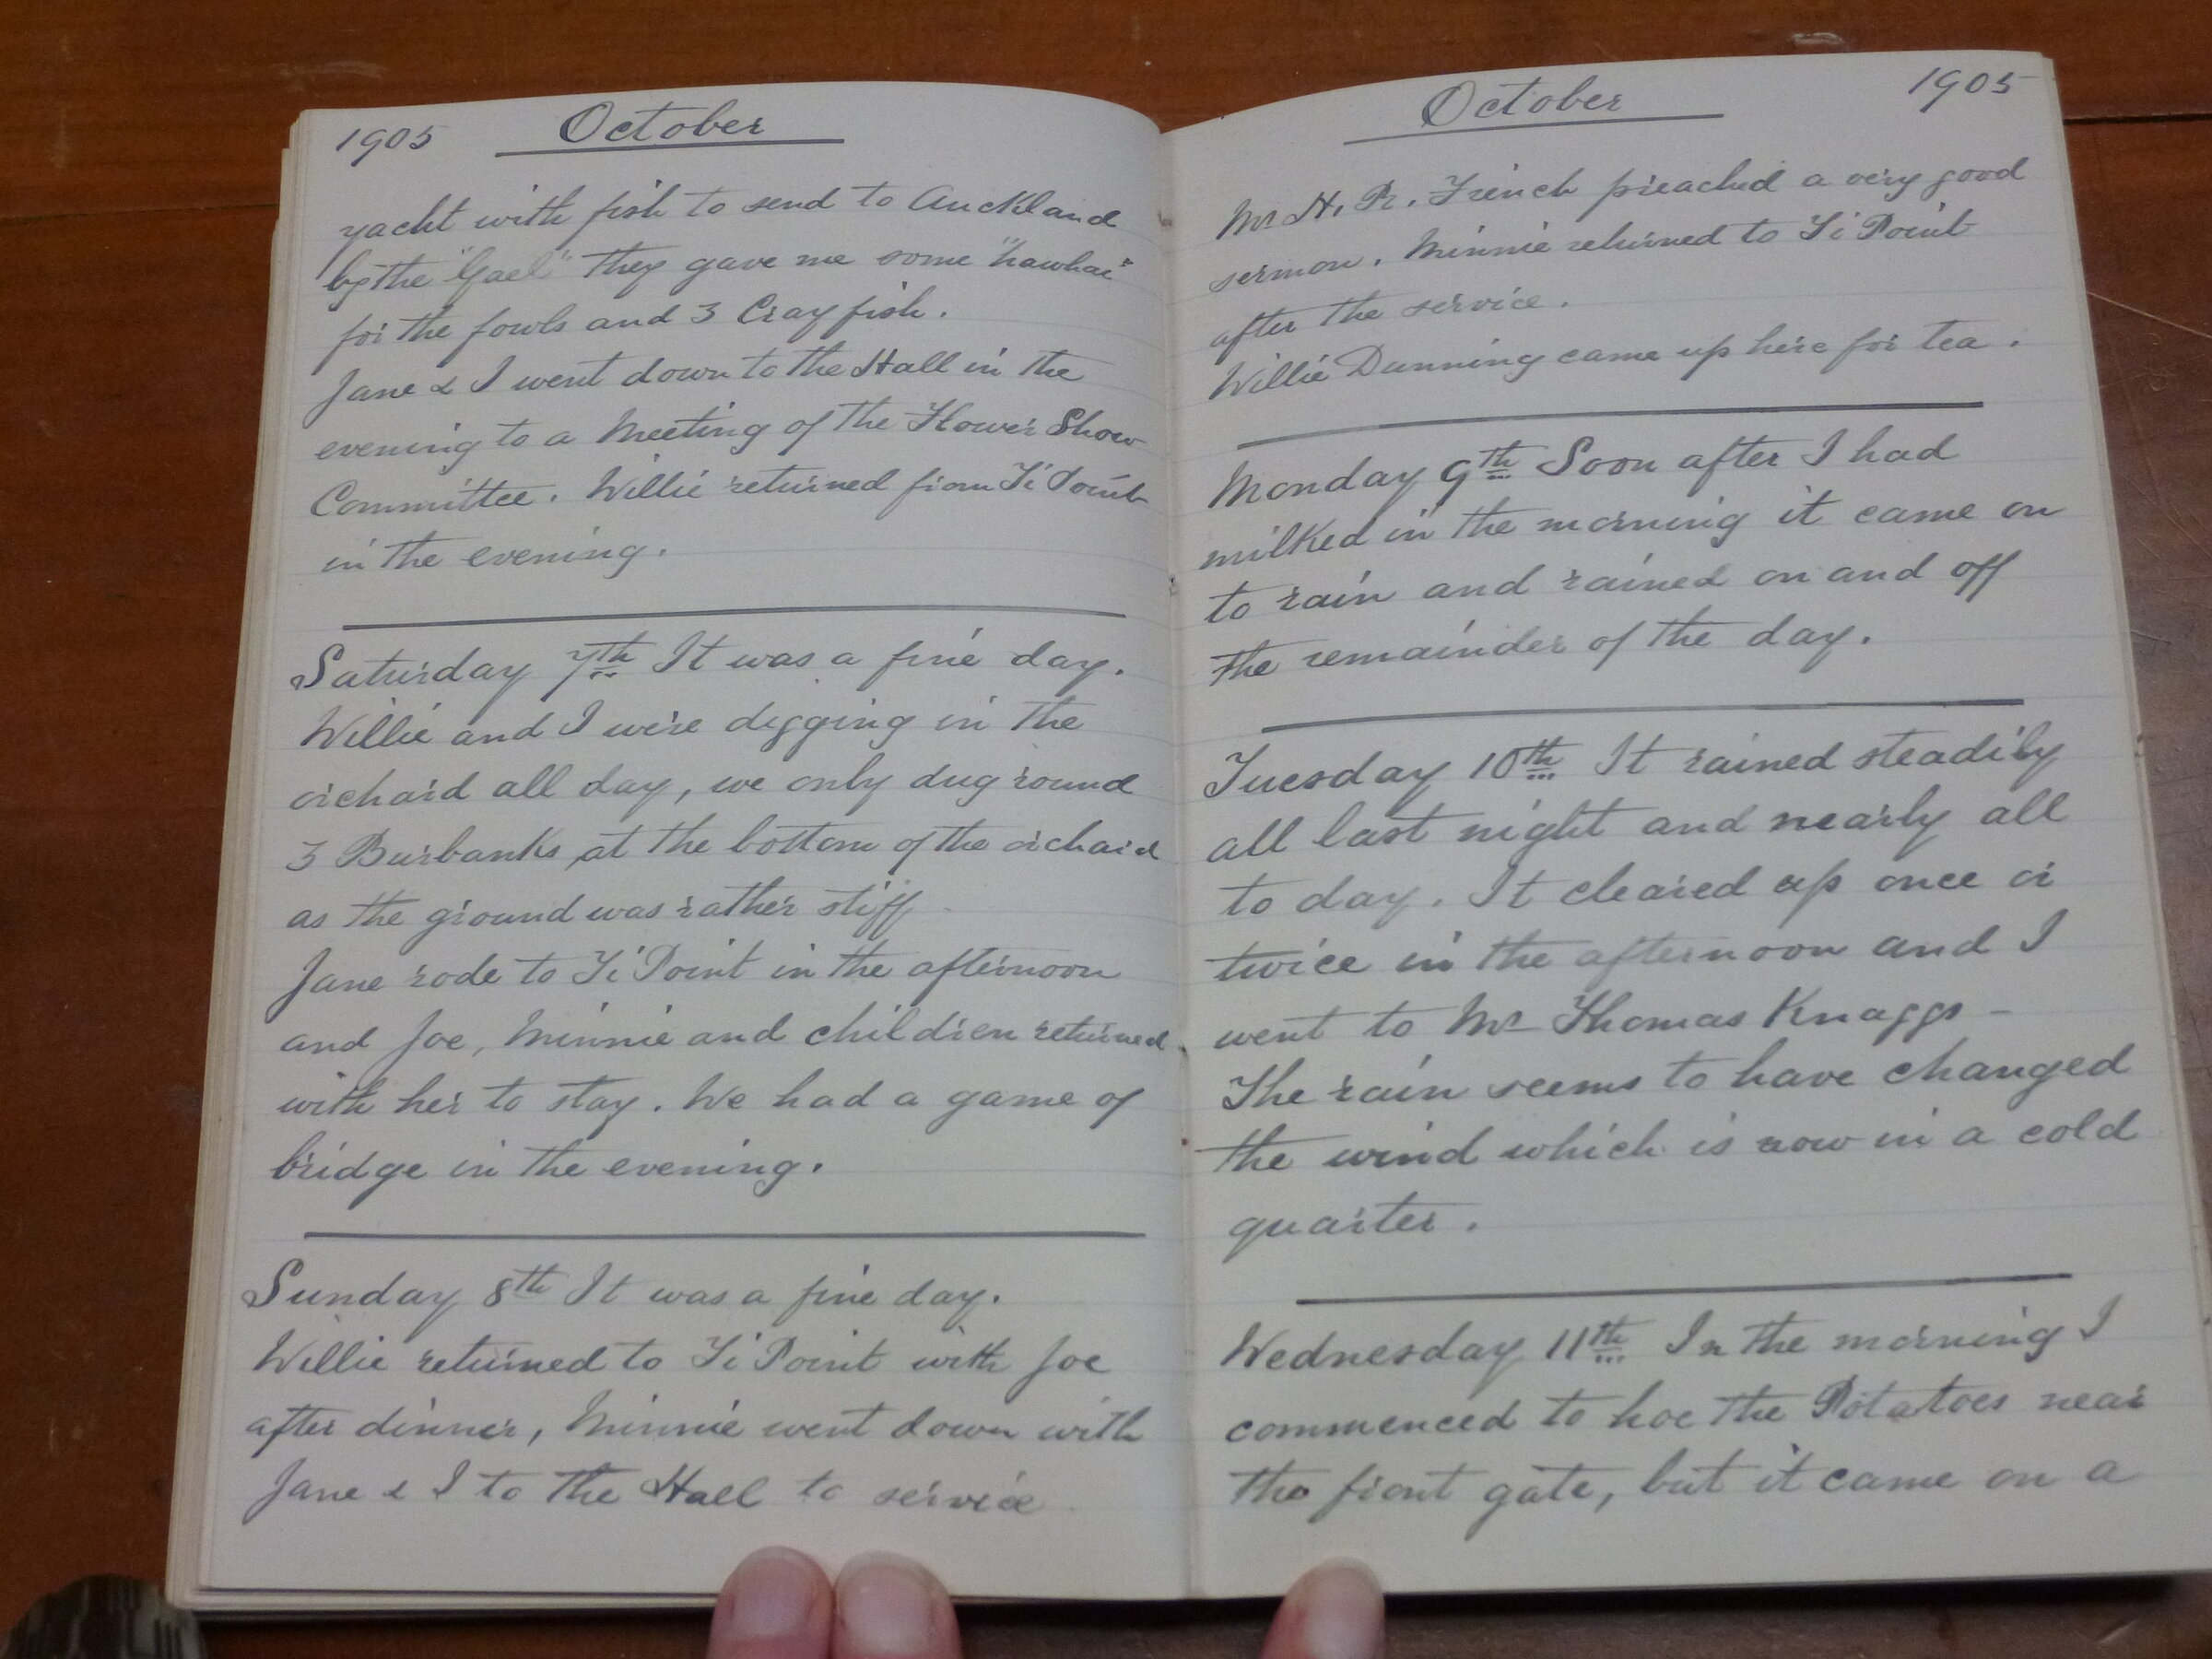 1905 October
yacht with fish to send to Auckland
by the "Gael" they gave me some "kawhai"
for the fowls and 3 Cray fish.
Jane & I went down to the Hall in the
evening to a Meeting of the Flower Show
Committee. Willie returned from Ti Point
in the evening.
Saturday 7th It was a fine day.
Willie and I were digging in the
orchard all day, we only dug round
3 Burbanks at the bottom of the orchard
as the ground was rather stiff
Jane rode to Ti Point in the afternoon
and Joe, Minnie and children returned
with her to stay. We had a game of
bridge in the evening.
Sunday 8th It was a fine day.
Willie returned to Ti Point with Joe
after dinner, Minnie went down with
Jane & I to the Hall to service
October 1905
Mr H. R. French preached a very good
sermon. Minnie returned to Ti Point
after the service.
Willie Dunning came up here for tea.
Monday 9th Soon after I had
milked in the morning it came on
to rain and rained on and off
the remainder of the day.
Tuesday 10th It rained steadily
all last night and nearly all
to day. It cleared up once or
twice in the afternoon and I
went to Mr Thomas Knaggs -
The rain seems to have changed
the wind which is now in a cold
quarter.
Wednesday 11th In the morning I
commenced to hoe the Potatoes near
the front gate, but it came on a